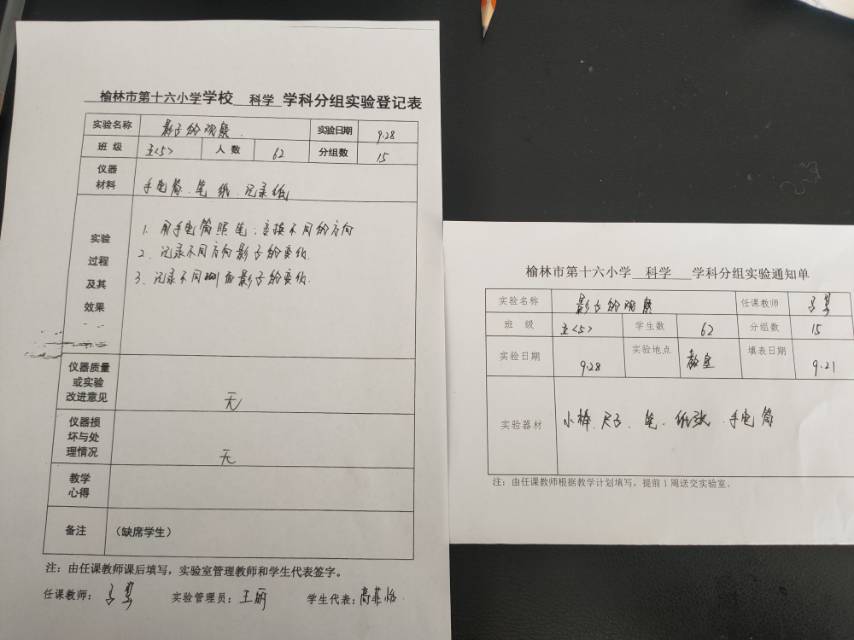 榆林市第十六小学学校 科学 学科分组实验登记表
实验名称 影子的观察 实验日期 9.28
班 级 五<5> 人 数 62 分组数 15
仪器
材料 手电筒、笔 纸、记录纸
实验
过程
及其
效果
1. 用手电筒照笔,变换不同的方向
2. 记录不同方向影子的变化
3. 记录不同侧面影子的变化.
仪器质量
或实验
改进意见 无
仪器损
坏与处
理情况 无
教学
心得
备注 (缺席学生)
注:由任课教师课后填写,实验室管理教师和学生代表签字。
任课教师: 实验管理员:王丽 学生代表:高菲怡
榆林市第十六小学 科学 学科分组实验通知单
实验名称 影子的观察 任课教师
班 级 五<5> 学生数 62 分组数 15
实验日期 9.28 实验地点 教室 填表日期 9.21
实验器材 小棒、尺子、笔、纸张、手电筒
注:由任课教师根据教学计划填写,提前1周送交实验室。